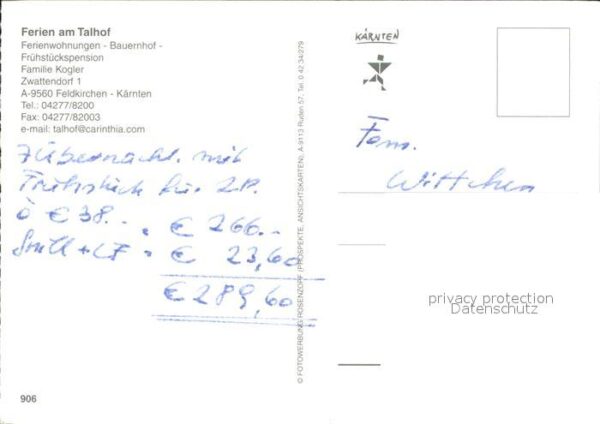 Ferien am Talhof
Ferienwohnungen - Bauernhof -
Frühstückspension
Familie Kogler
Zwattendorf 1
A-9560 Feldkirchen - Kärnten
Tel.: 04277/8200
Fax: 04277/82003
e-mail: talhof@carinthia.com
7 Übernacht. mit
Frühstück für 2 P.
à € 38.- = € 266.-
+ = € 23,60
€ 289,60
906
© FOTOWERBUNG ROSENZOPF (PROSPEKTE, ANSICHTSKARTEN), A-9113 Ruden 57, Tel. 0 42 34/279
KÄRNTEN
Fam.
Wittchen
privacy protection
Datenschutz